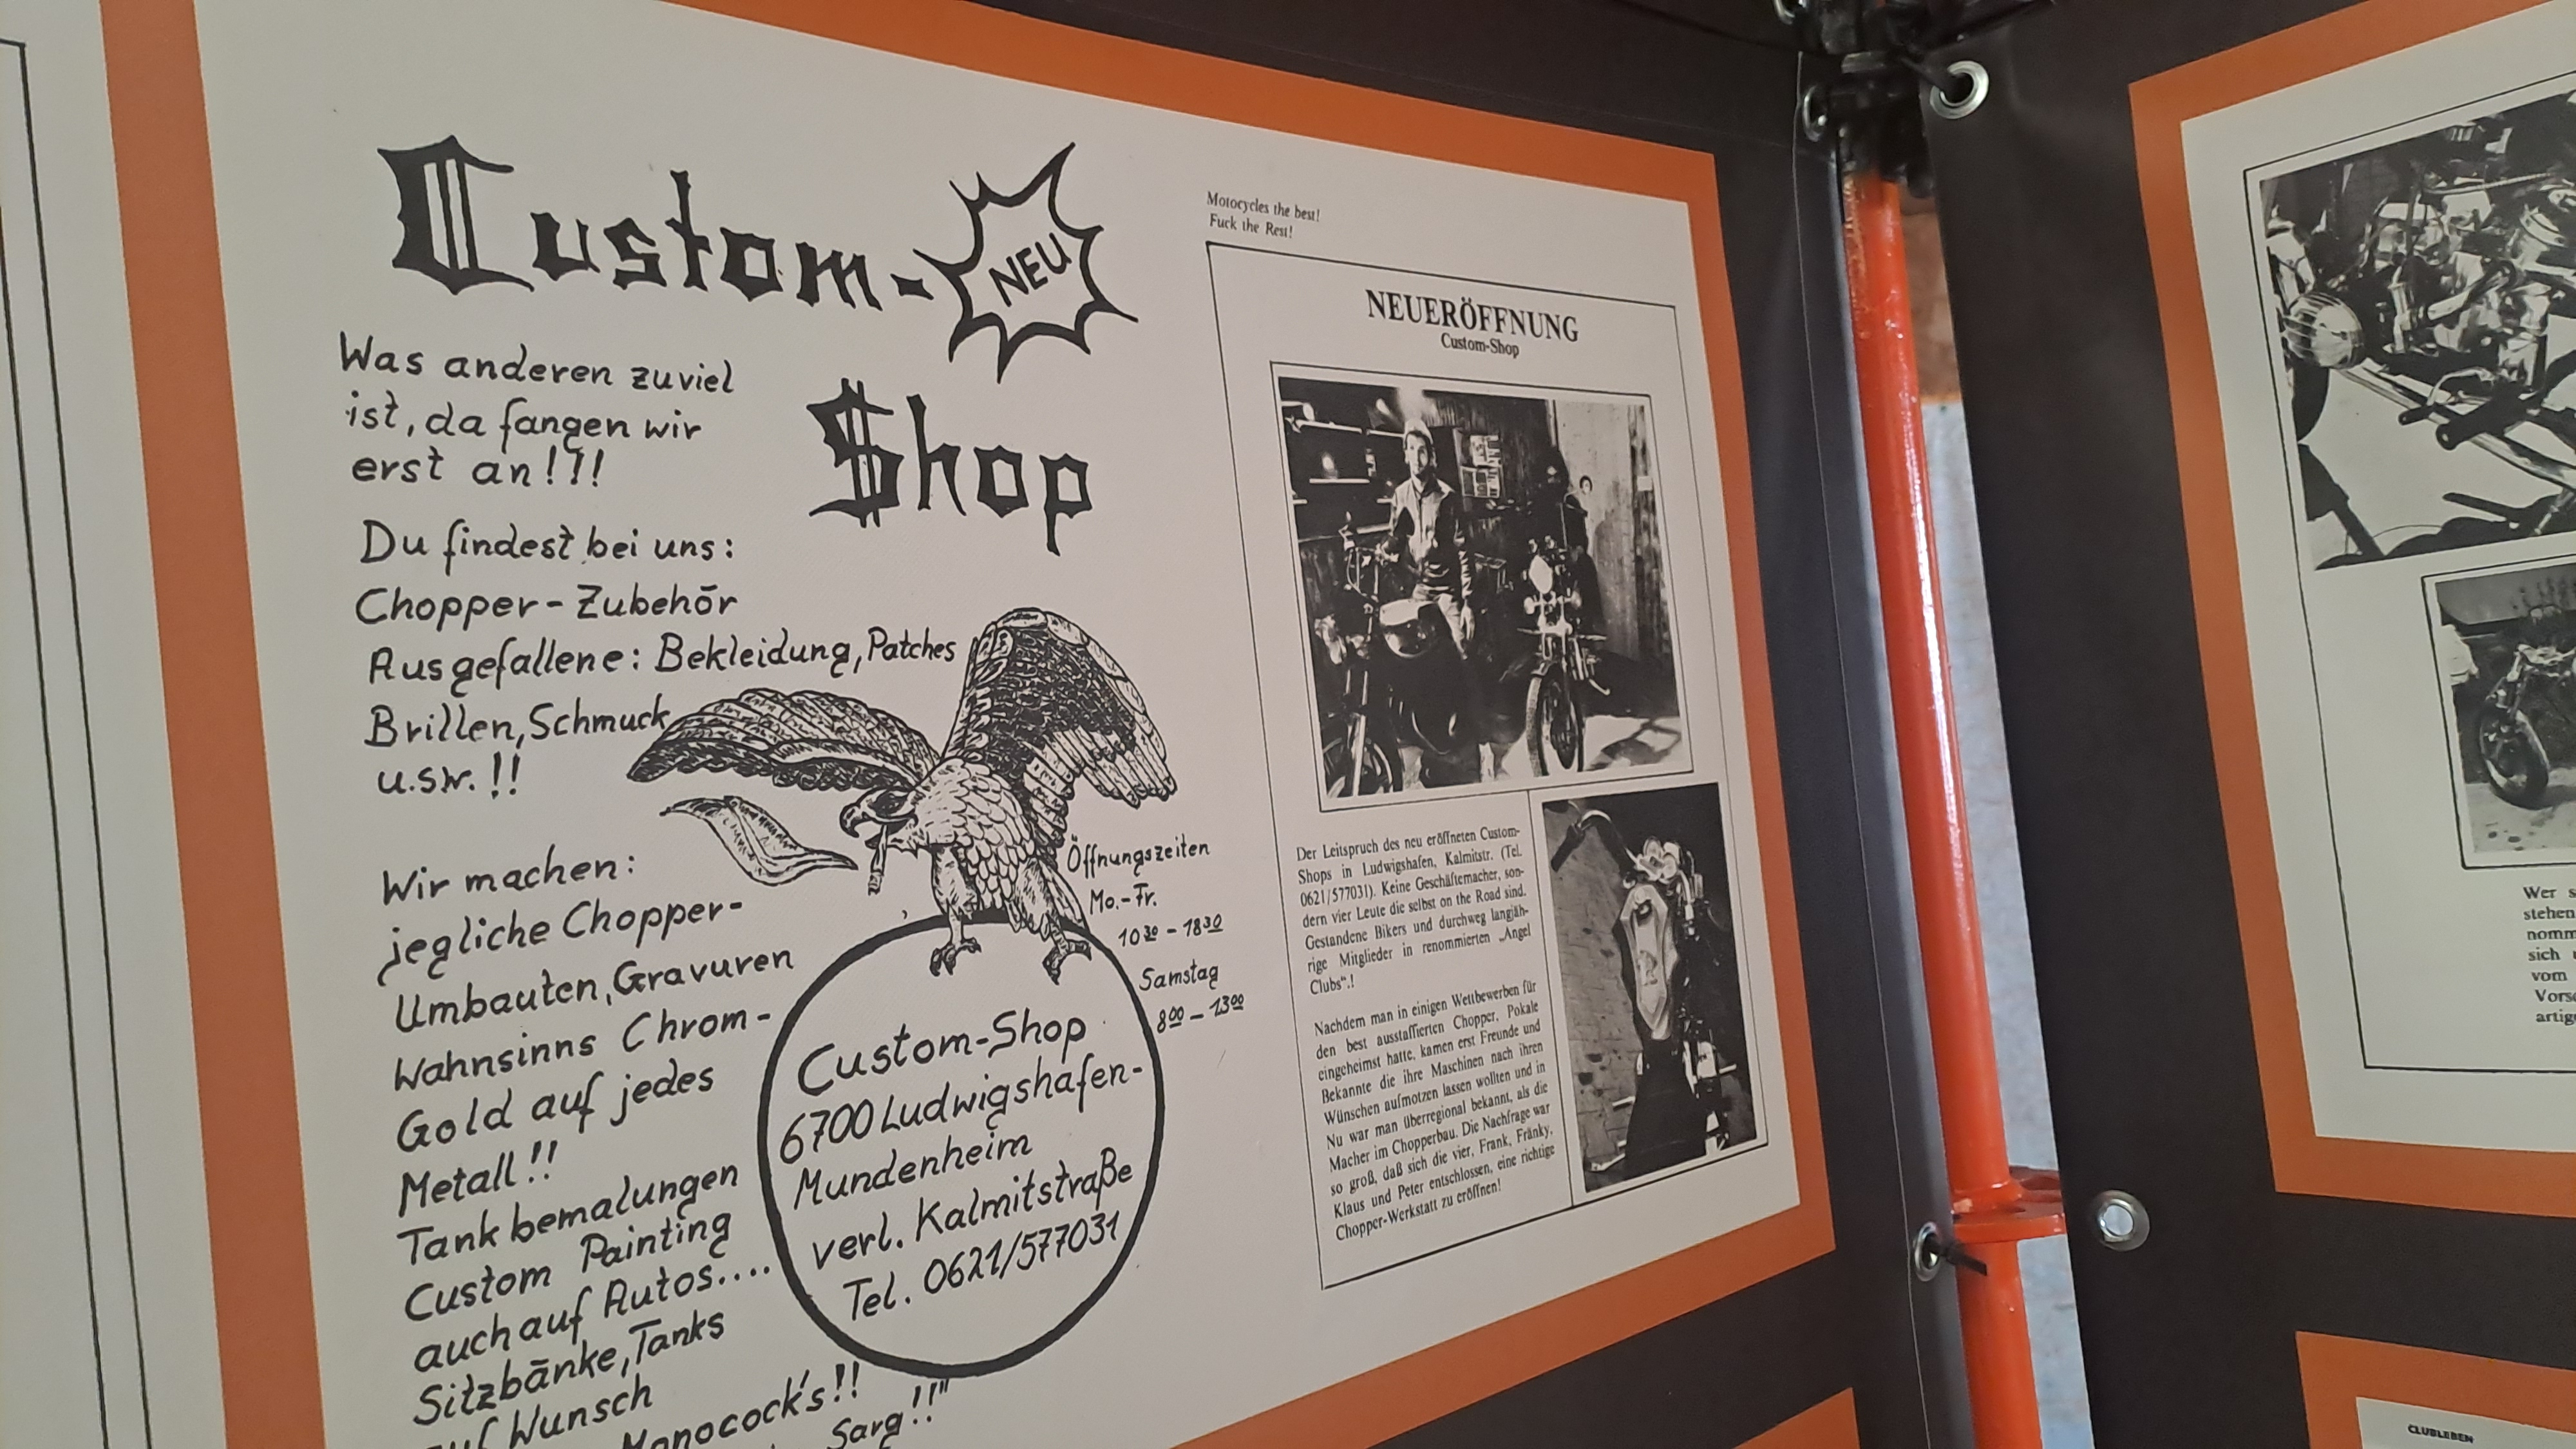 Custom-
NEU
$hop
Was anderen zuviel
ist, da fangen wir
erst an!!!
Du findest bei uns:
Chopper-Zubehör
Ausgefallene: Bekleidung, Patches
Brillen, Schmuck
u.sw.!!
Wir machen:
jegliche Chopper-
Umbauten, Gravuren
Wahnsinns Chrom-
Gold auf jedes
Metall!!
Tankbemalungen
Custom Painting
auch auf Autos....
Sitzbänke, Tanks
auf Wunsch
Monocock's!!
Sarg!!"
Öffnungszeiten
Mo.-Fr.
10 30 - 18 30
Samstag
8 00 - 13 00
Custom-Shop
6700 Ludwigshafen-
Mundenheim
verl. Kalmitstraße
Tel. 0621/577031
Motocycles the best!
Fuck the Rest!
NEUERÖFFNUNG
Custom-Shop
Der Leitspruch des neu eröffneten Custom-
Shops in Ludwigshafen, Kalmitstr. (Tel.
0621/577031). Keine Geschäftemacher, son-
dern vier Leute die selbst on the Road sind.
Gestandene Bikers und durchweg langjäh-
rige Mitglieder in renommierten „Angel
Clubs“.!
Nachdem man in einigen Wettbewerben für
den best ausstaffierten Chopper, Pokale
eingeheimst hatte, kamen erst Freunde und
Bekannte die ihre Maschinen nach ihren
Wünschen aufmotzen lassen wollten und in
Nu war man überregional bekannt, als die
Macher im Chopperbau. Die Nachfrage war
so groß, daß sich die vier, Frank, Fränky,
Klaus und Peter entschlossen, eine richtige
Chopper-Werkstatt zu eröffnen!
Wer s
stehen
nomm
sich
vom
Vors
artig
CLUBLEBEN